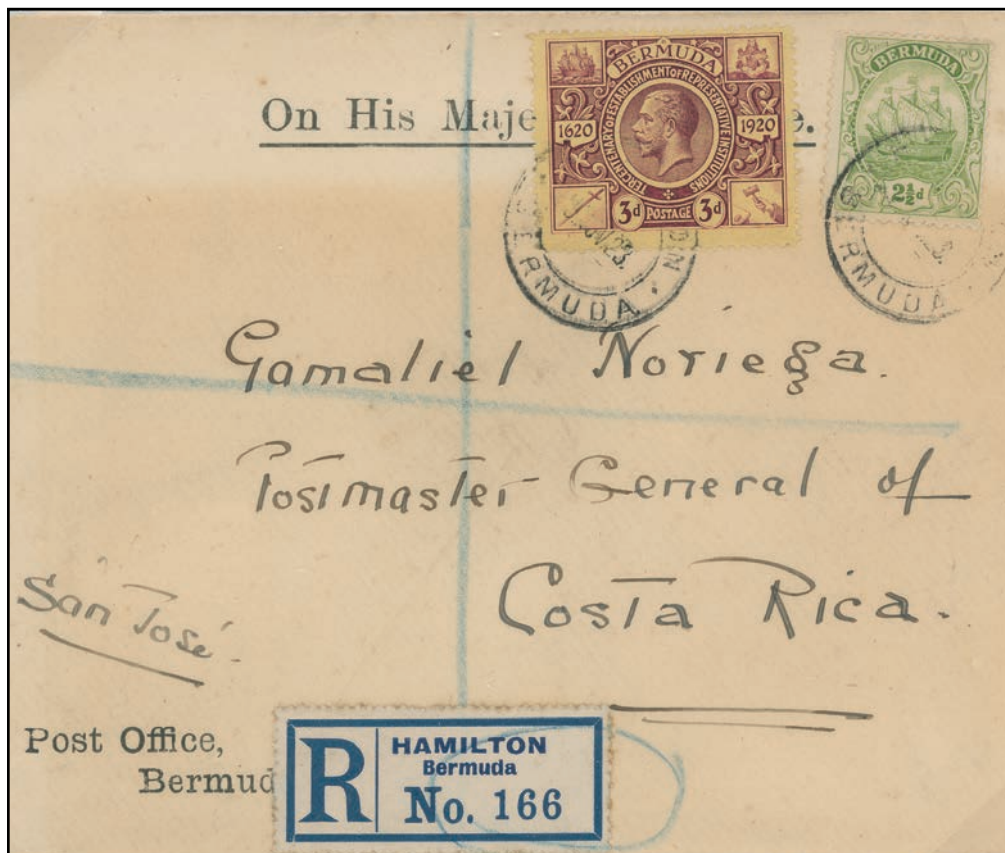 On His Maje e.
BERMUDA
TERCENTENARY OF ESTABLISHMENT OF REPRESENTATIVE INSTITUTIONS
1620 1920
3d POSTAGE 3d
BERMUDA
2½d
BERMUDA
BERMUDA
Gamaliel Noriega.
Postmaster General of
Costa Rica.
San José.
Post Office,
Bermud
R
HAMILTON
Bermuda
No. 166